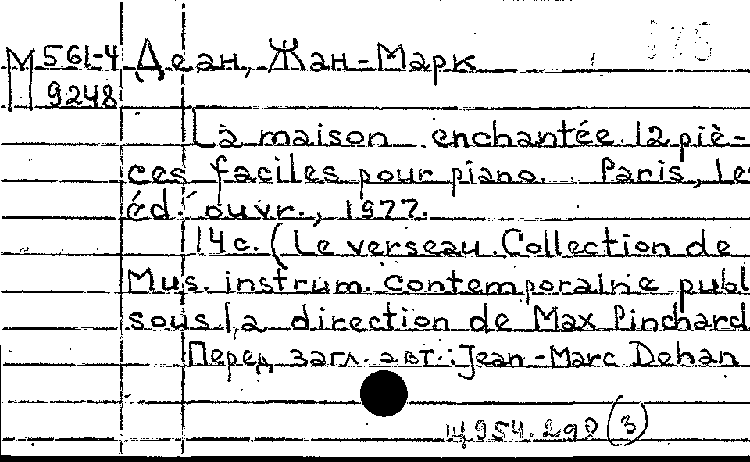 М 561-4 Деан, Жан-Марк
9248
La maison enchantée. 12 piè-
ces faciles pour piano. Paris, les
éd. ouvr., 1977.
14 с. (Le verseau. Collection de
Mus. instrum. contemporaine publ
sous la direction de Max Pinchard
Перед загл. авт.: Jean-Marc Dehan
954.290 (3)